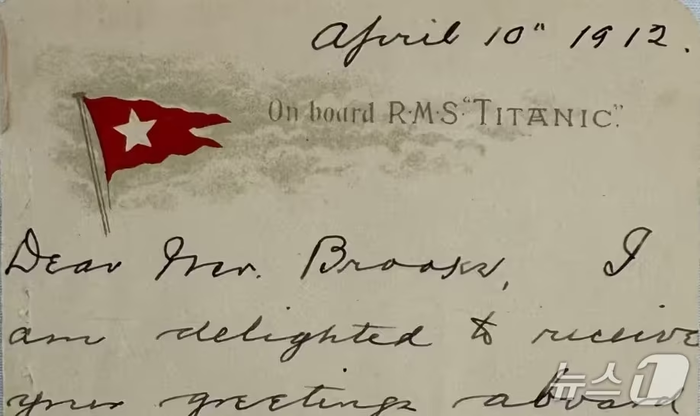 April 10" 1912.
On board R·M·S·"TITANIC".
Dear Mr. Brooks, I
am delighted to receive
your greetings aboard
뉴스1